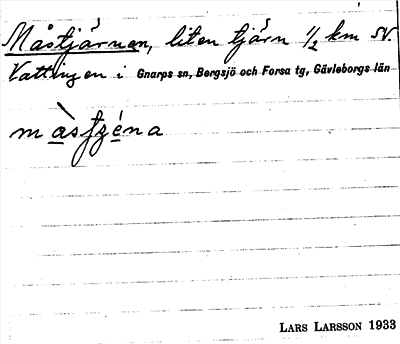 Måstjärnen, liten tjärn 1/2 km SV.
Vattingen i Gnarps sn, Bergsjö och Forsa tg, Gävleborgs län
LARS LARSSON 1933